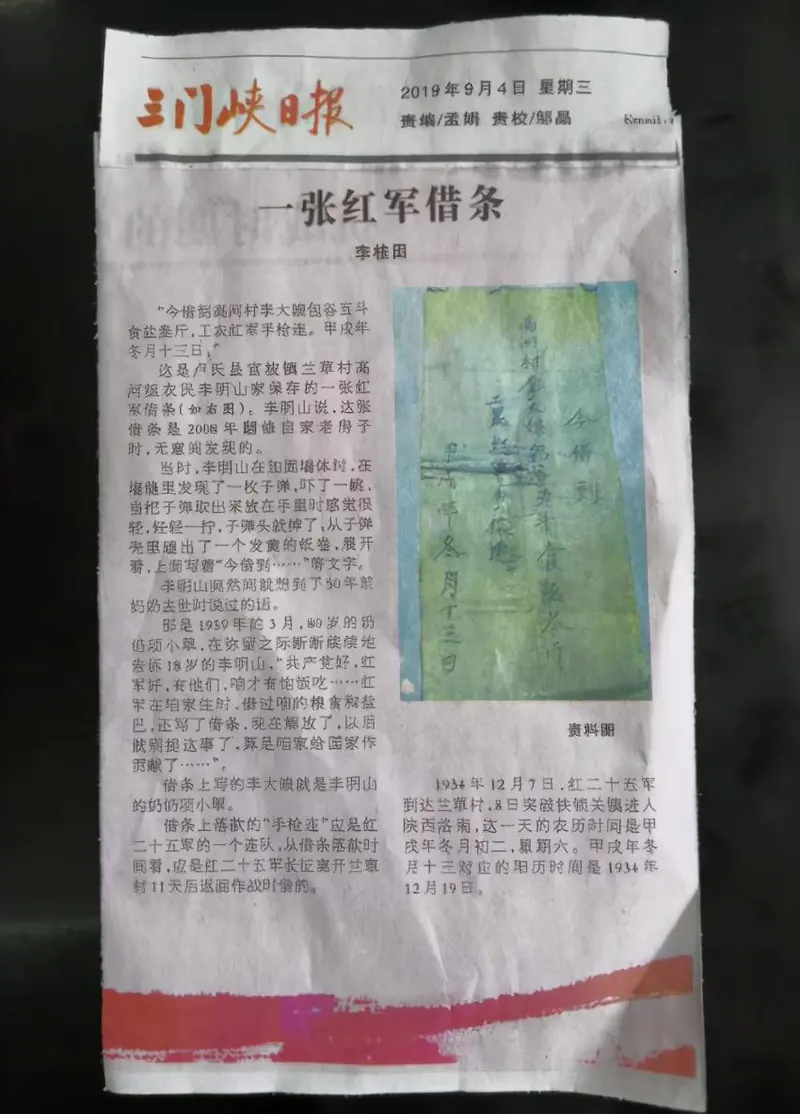 三门峡日报
2019年9月4日 星期三
责编/孟娟 责校/邬晶
一张红军借条
李桂田
"今借到高河村李大娘包谷五斗
食盐叁斤，工农红军手枪连。甲戌年
冬月十三日。"
这是卢氏县官坡镇兰草村高
河组农民李明山家保存的一张红
军借条（如右图）。李明山说，这张
借条是2008年翻修自家老房子
时，无意间发现的。
当时，李明山在加固墙体时，在
墙缝里发现了一枚子弹，吓了一跳，
当把子弹取出来放在手里时感觉很
轻，轻轻一拧，子弹头就掉了，从子弹
壳里露出了一个发黄的纸卷，展开
看，上面写着"今借到……"等文字。
李明山突然间就想到了30年前
奶奶去世时说过的话。
那是1989年的3月，80岁的奶
奶项小翠，在弥留之际断断续续地
告诉18岁的李明山，"共产党好，红
军好，有他们，咱才有饱饭吃……红
军在咱家住时，借过咱的粮食和盐
巴，还写了借条，现在解放了，以后
就别提这事了，算是咱家给国家作
贡献了……"。
借条上写的李大娘就是李明山
的奶奶项小翠。
借条上落款的"手枪连"应是红
二十五军的一个连队，从借条落款时
间看，应是红二十五军长征离开兰草
村11天后返回作战时借的。
今借到
高河村李大娘包谷五斗食盐叁斤
工农红军手枪连
甲戌年冬月十三日
资料图
1934年12月7日，红二十五军
到达兰草村，8日突破铁锁关镇进入
陕西洛南，这一天的农历时间是甲
戌年冬月初二，星期六。甲戌年冬
月十三对应的阳历时间是1934年
12月19日。